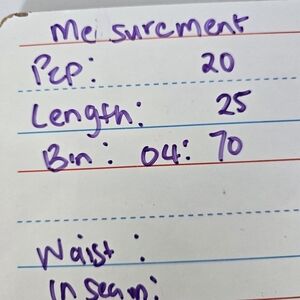 Me surcment
Pcp: 20
Length: 25
Bin: 04: 70
Waist :
Inseam: